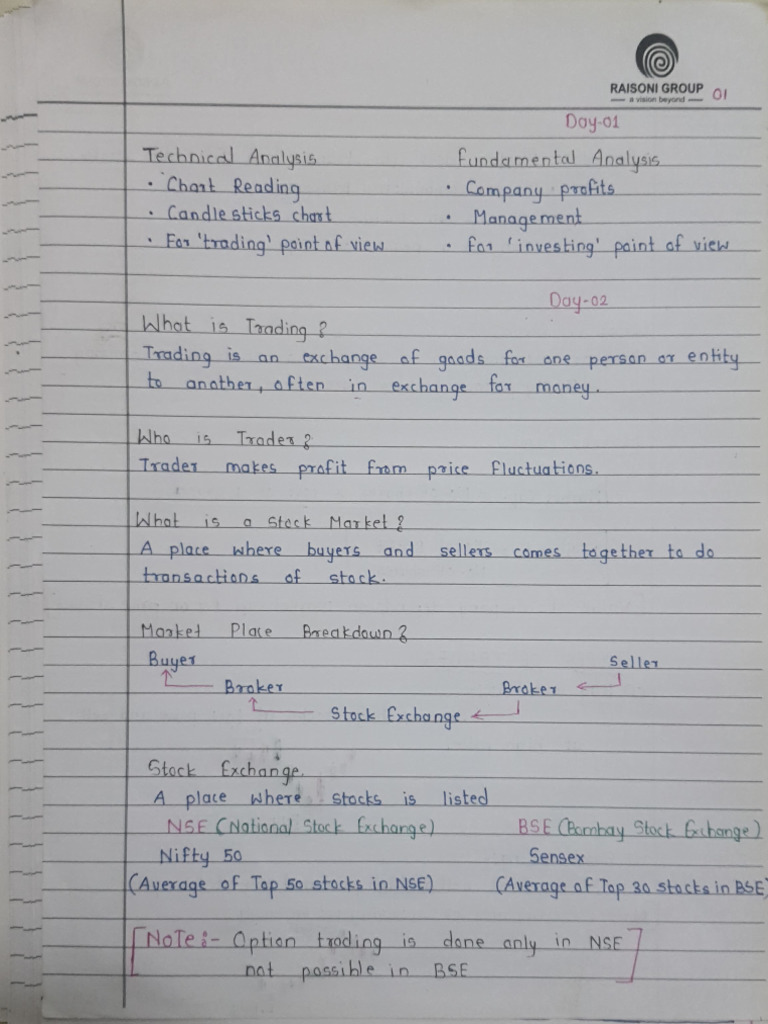 RAISONI GROUP
a vision beyond
01
Day-01
Technical Analysis
• Chart Reading
• Candlesticks chart
• For 'trading' point of view
Fundamental Analysis
• Company profits
• Management
• For 'investing' point of view
Day-02
What is Trading?
Trading is an exchange of goods for one person or entity
to another, often in exchange for money.
Who is Trader?
Trader makes profit from price fluctuations.
What is a Stock Market?
A place where buyers and sellers comes together to do
transactions of stock.
Market Place Breakdown?
Buyer Seller
Broker Broker
Stock Exchange
Stock Exchange.
A place where stocks is listed
NSE (National Stock Exchange) BSE (Bombay Stock Exchange)
Nifty 50 Sensex
(Average of Top 50 stocks in NSE) (Average of Top 30 stocks in BSE)
[NOTE:- Option trading is done only in NSE
not possible in BSE]